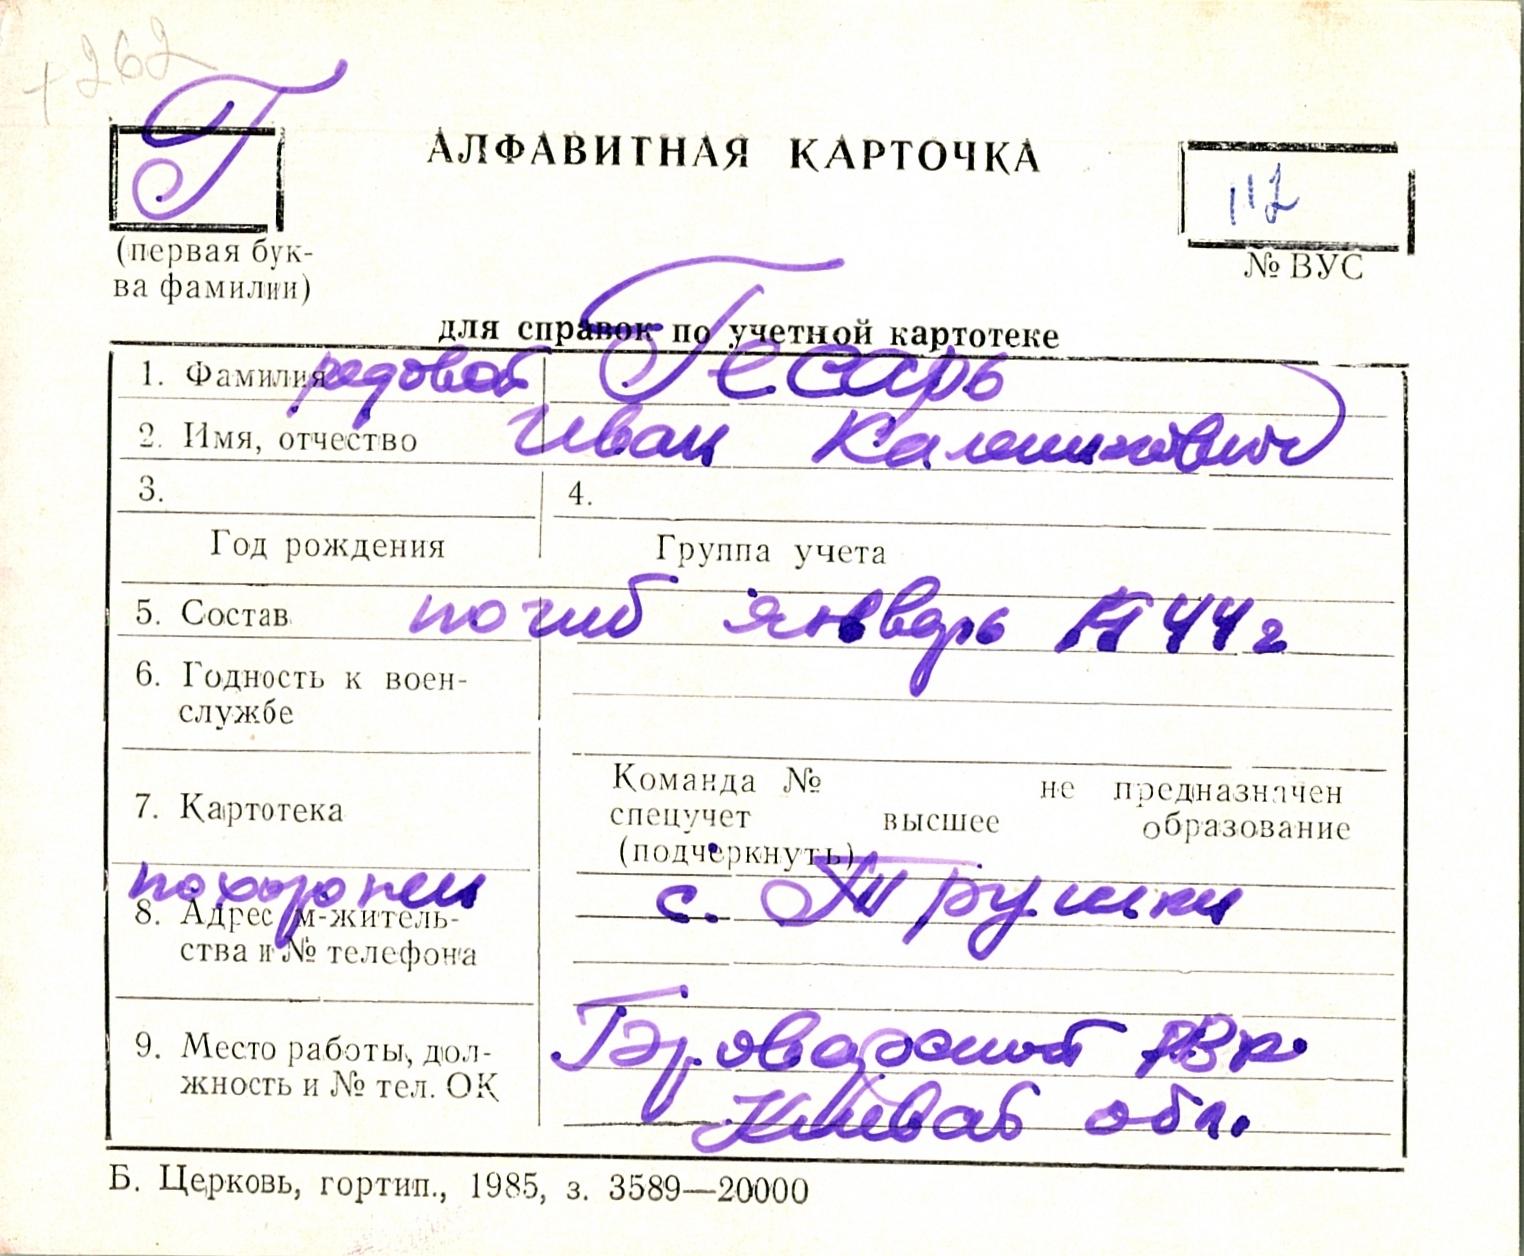 +262
Г
АЛФАВИТНАЯ КАРТОЧКА
112
(первая бук-
ва фамилии)
№ ВУС
для справок по учетной картотеке
1. Фамилия рядовой Гесарь
2. Имя, отчество Иван Каленикович
3. 4.
Год рождения Группа учета
5. Состав погиб январь 1944 г
6. Годность к воен-
службе
Команда № не предназначен
7. Картотека спецучет высшее образование
(подчеркнуть)
похоронен с. Трушки
8. Адрес м-житель-
ства и № телефона
9. Место работы, дол-
жность и № тел. ОК
РВК
Киевской обл.
Б. Церковь, гортип., 1985, з. 3589—20000